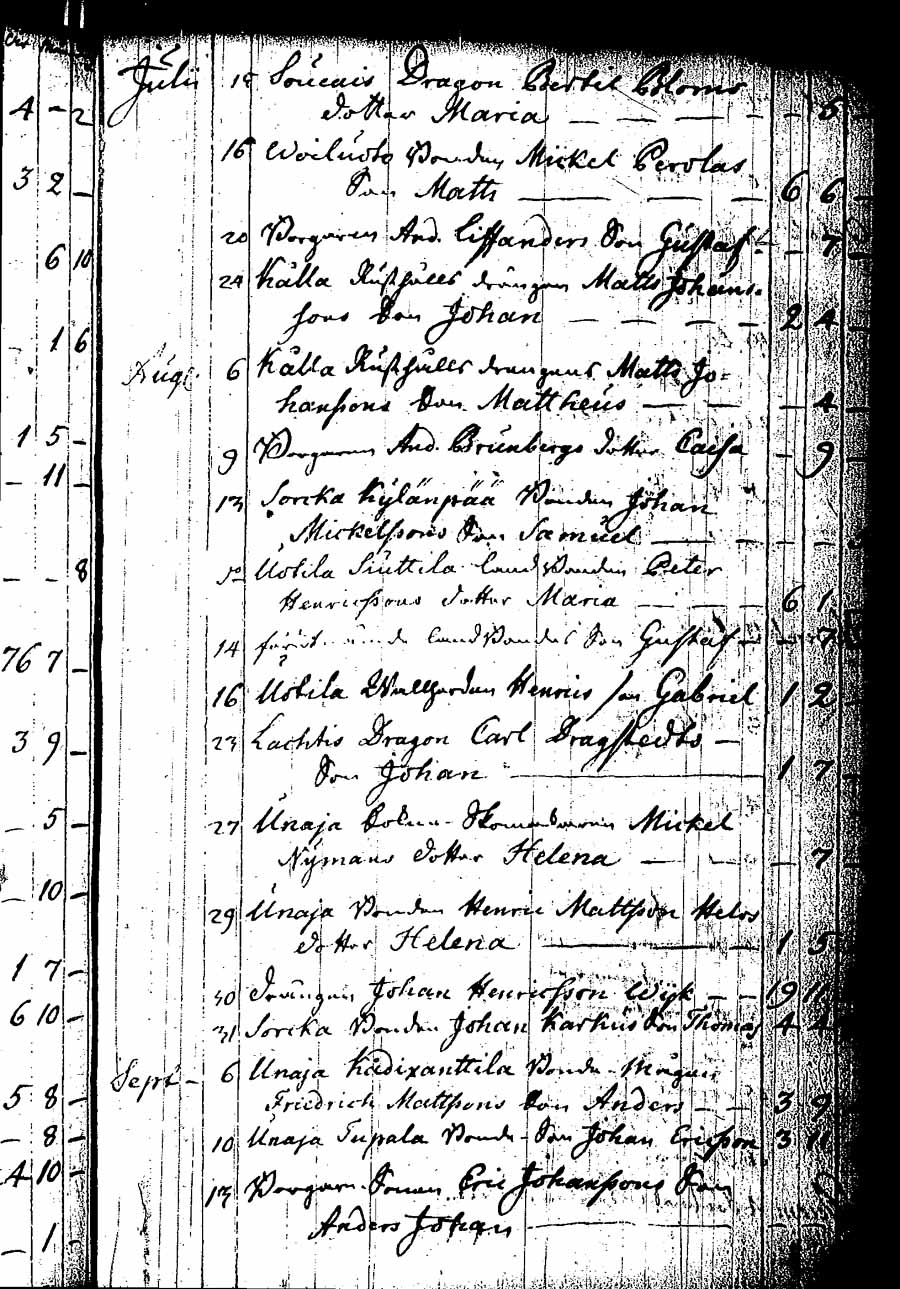 Juli 18 Soucais Dragon Bertil Bloms
4 - 2 dotter Maria - - 5
16 Woiluoto Bonden Mickel Perolas
3 2 - Son Matts 6 6
20 Borgaren And. Liffanders Son Gustaf - 7
6 10 24 Källa Rusthålls drängen Matts Johans-
sons Son Johan 2 4
- 1 6
Aug. 6 Källa Rusthålls drängens Matts Jo=
hanssons Son Mattheus - 4
1 5 - 9 Borgaren And. Brunbergs dotter Caisa - 9
- 11 - 13 Sorcka Kylänpää Bonden Johan
Mickelssons Son Samuel - -
- - 8 Uotila Siuttila Land Bonden Peter
Henricssons dotter Maria 6 1
14 Land Bondes Son Gustaf - 7
76 7 - 16 Uotila Henrics son Gabriel 1 2
3 9 - 23 Lachtis Dragon Carl Dragstedts -
Son Johan 1 7
- 5 - 27 Unaja Mickel
Nymans dotter Helena - 7
- 10 - 29 Unaja Bonden Henric Mattsson Helos
dotter Helena 1 5
1 7 - 30 Drängen Johan Henricsson Wijk - - 19 11
6 10 - 31 Sorcka Bonden Johan Karhus Son Thomas 4 4
Sept - 6 Unaja Kådixanttila Bonde-Mågen
5 8 - Friedrich Mattssons Son Anders - - 3 9
- 8 - 10 Unaja Tupala Bonde-Son Johan Ericsson 3 11
4 10 - 13 Borgare Sonen Eric Johanssons Son
- 1 - Anders Johan